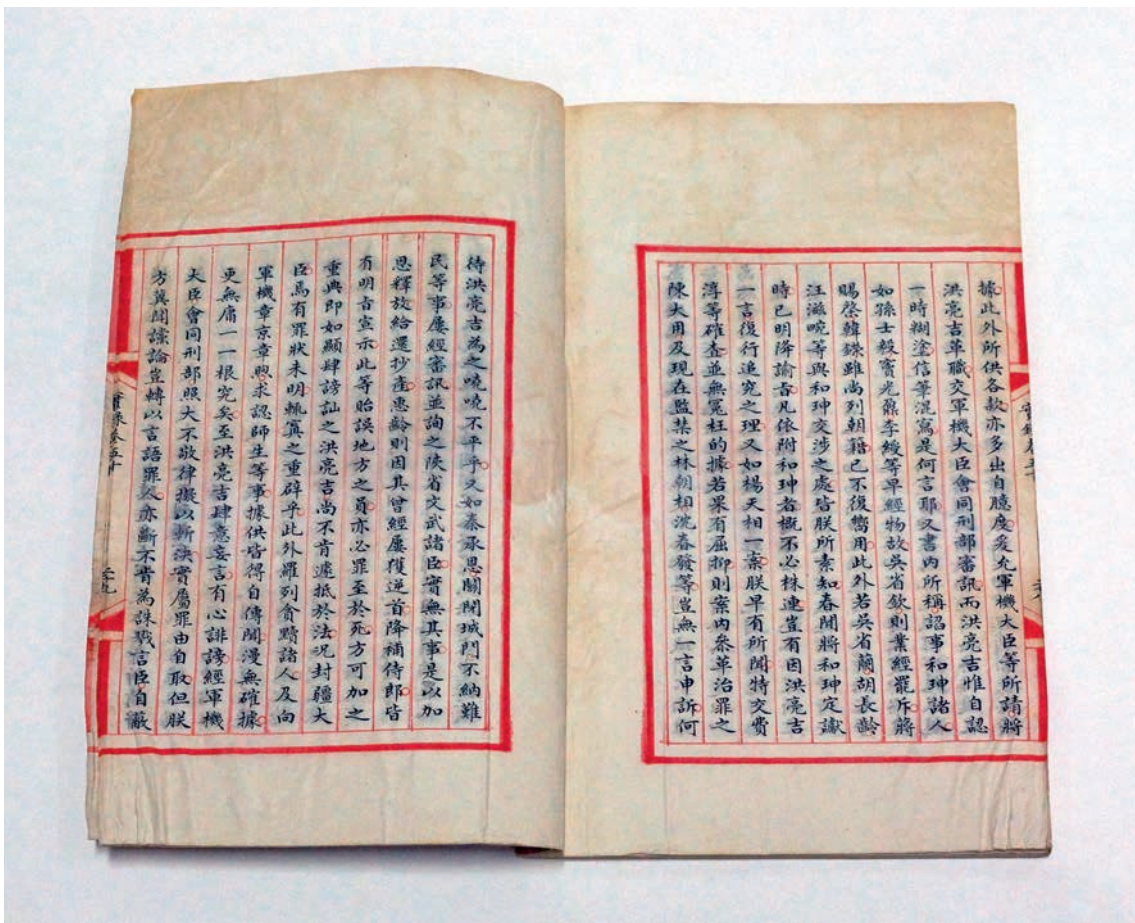 據此外所供各款亦多出自臆度爰允軍機大臣等所請將
洪亮吉革職交軍機大臣會同刑部審訊而洪亮吉惟自認
一時糊塗信筆混寫是何言耶又書內所稱諂事和珅諸人
如孫士毅竇光鼐李綬等早經物故吳省欽則業經罷斥蔣
賜棨韓鑅雖尚列朝籍已不復嚮用此外若吳省蘭胡長齡
汪滋畹等與和珅交涉之處皆朕所素知春間將和珅定讞
時已明降諭旨凡依附和珅者概不必株連豈有因洪亮吉
一言復行追究之理又如楊天相一案朕早有所聞特交費
淳等確查並無冤枉的據若果有屈抑則案內叅革治罪之
陳大用及現在監禁之林朝相沈春發等豈無一言申訴何
待洪亮吉為之嘵嘵不平乎又如秦承恩關閉城門不納難
民等事屢經審訊並詢之陝省文武諸臣實無其事是以加
恩釋放給還抄產惠齡則因其曾經屢獲逆首降補侍郎皆
有明旨宣示此等貽誤地方之員亦必罪至於死方可加之
重典即如顯肆謗訕之洪亮吉尚不肯遽抵於法況封疆大
臣焉有罪狀未明輒寘之重辟乎此外羅列貪黷諸人及向
軍機章京章煦求認師生等事據供皆得自傳聞漫無確據
更無庸一一根究矣至洪亮吉肆意妄言有心誹謗經軍機
大臣會同刑部照大不敬律擬以斬決實屬罪由自取但朕
方冀聞讜論豈轉以言語罪人亦斷不肯為誅戮言臣自蔽
實錄卷五十
二十九